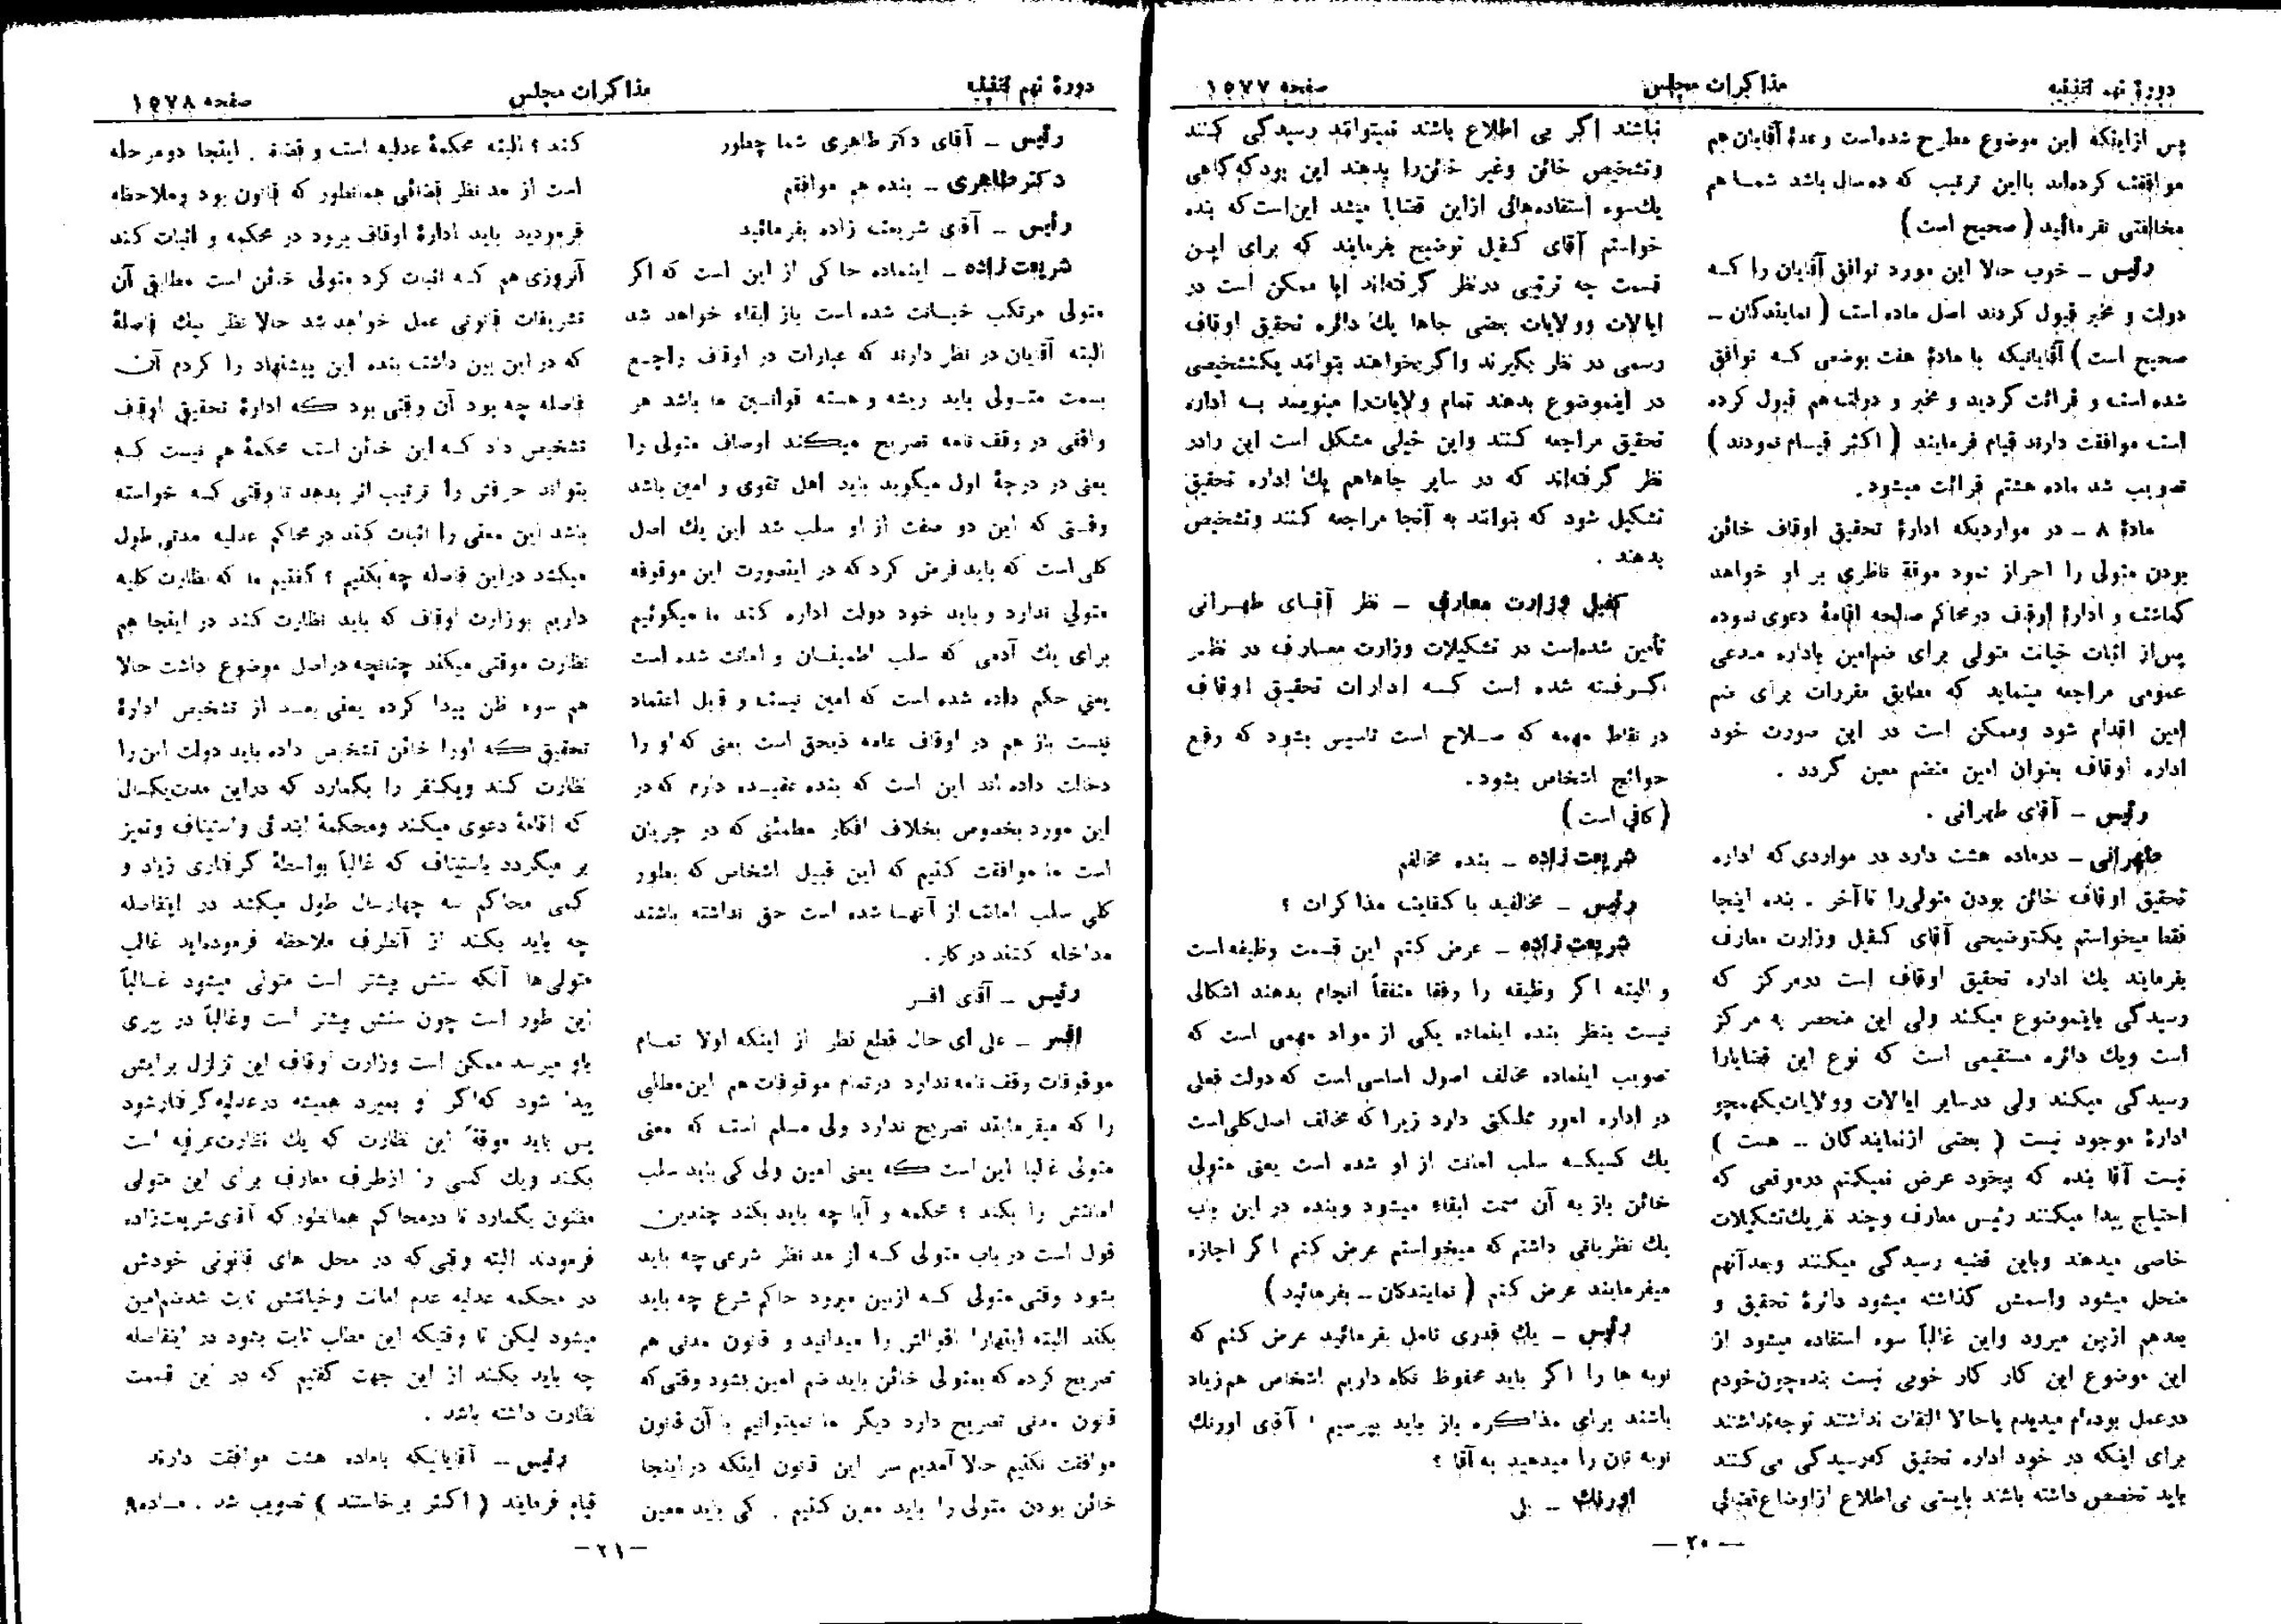 دورهٔ نهم تقنینیه
مذاکرات مجلس
صفحه ۱۵۷۷
پس ازاینکه این موضوع مطرح شده‌است و عدهٔ آقایان هم
موافقت کرده‌اند بااین ترتیب که ده سال باشد شما هم
مخالفتی نفرمائید ( صحیح است )
رئیس ـ خوب حالا این مورد توافق آقایان را که
دولت و مخبر قبول کردند اصل ماده است ( نمایندگان ـ
صحیح است ) آقایانیکه با مادهٔ هفت بوضعی که توافق
شده است و قرائت گردید و مخبر و دولت هم قبول کرده
است موافقت دارند قیام فرمایند ( اکثر قیام نمودند )
تصویب شد ماده هشتم قرائت میشود.
مادهٔ ۸ ـ در مواردیکه ادارهٔ تحقیق اوقاف خائن
بودن متولی را احراز نمود موقة ناظری بر او خواهد
گماشت و ادارهٔ اوقاف درمحاکم صالحه اقامهٔ دعوی نموده
پس‌از اثبات خیانت متولی برای ضم‌امین باداره مدعی
عمومی مراجعه مینماید که مطابق مقررات برای ضم
امین اقدام شود وممکن است در این صورت خود
اداره اوقاف بعنوان امین منضم معین گردد .
رئیس ـ آقای طهرانی .
طهرانی ـ درماده هشت دارد در مواردی که اداره
تحقیق اوقاف خائن بودن متولی‌را تاآخر . بنده اینجا
فقط میخواستم یکتوضیحی آقای کفیل وزارت معارف
بفرمایند یك اداره تحقیق اوقاف است درمرکز که
رسیدگی باینموضوع میکند ولی این منحصر به مرکز
است ویك دائره مستقیمی است که نوع این قضایارا
رسیدگی میکند ولی درسایر ایالات وولایات‌یکهمچو
ادارهٔ موجود نیست ( بعضی ازنمایندگان ـ هست )
نیست آقا بنده که بیخود عرض نمیکنم درموقعی که
احتیاج پیدا میکنند رئیس معارف وچند نفریك‌تشکیلات
خاصی میدهند وباین قضیه رسیدگی میکنند وبعدآنهم
منحل میشود واسمش گذاشته میشود دائرهٔ تحقیق و
بعدهم ازبین میرود واین غالباً سوء استفاده میشود از
این موضوع این کار کار خوبی نیست بنده‌چون‌خودم
درعمل بوده‌ام میدیدم یاحالا التفات نداشتند توجه‌نداشتند
برای اینکه در خود اداره تحقیق که‌رسیدگی می‌کنند
باید تخصص داشته باشند بایستی بی‌اطلاع ازاوضاع‌قضائی
نباشند اگر بی اطلاع باشند نمیتوانند رسیدگی کنند
وتشخیص خائن وغیر خائن‌را بدهند این بودکه‌گاهی
یك‌سوء استفاده‌هائی ازاین قضایا میشد این‌است‌که بنده
خواستم آقای کفیل توضیح بفرمایند که برای این
قسمت چه ترتیبی درنظر گرفته‌اند ایا ممکن است در
ایالات وولایات بعضی جاها یك دائره تحقیق اوقاف
رسمی در نظر بگیرند واگربخواهند بتوانند یکتشخیصی
در اینموضوع بدهند تمام ولایات‌را مینویسد به اداره
تحقیق مراجعه کنند واین خیلی مشکل است این رادر
نظر گرفته‌اند که در سایر جاهاهم یك اداره تحقیق
تشکیل شود که بتوانند به آنجا مراجعه کنند وتشخیص
بدهند .
کفیل وزارت معارف ـ نظر آقای طهرانی
تأمین شده‌است در تشکیلات وزارت معارف در نظر
گرفته شده است که ادارات تحقیق اوقاف
در نقاط مهمه که صلاح است تاسیس بشود که رفع
حوائج اشخاص بشود.
( کافی است )
شریعت زاده ـ بنده مخالفم
رئیس ـ مخالفید با کفایت مذاکرات ؟
شریعت زاده ـ عرض کنم این قسمت وظیفه‌است
و البته اگر وظیفه را رفقا متفقاً انجام بدهند اشکالی
نیست بنظر بنده اینماده یکی از مواد مهمی است که
تصویب اینماده مخالف اصول اساسی است که دولت فعلی
در اداره امور مملکتی دارد زیرا که مخالف اصل‌کلی‌است
یك کسیکه سلب امانت از او شده است یعنی متولی
خائن باز به آن سمت ابقاء میشود وبنده در این باب
یك نظریاتی داشتم که میخواستم عرض کنم اگر اجازه
میفرمایند عرض کنم ( نمایندگان ـ بفرمائید )
رئیس ـ یك قدری تامل بفرمائید عرض کنم که
نوبه ها را اگر باید محفوظ نگاه داریم اشخاص هم‌زیاد
باشند برای مذاکره باز باید بپرسیم ، آقای اورنك
نوبه تان را میدهید به آقا ؟
اورنك ـ بلی
ـ ۲۰ ـ
دورهٔ نهم تقنینیه
مذاکرات مجلس
صفحه ۱۵۷۸
رئیس ـ آقای دکتر طاهری شما چطور
دکتر طاهری ـ بنده هم موافقم
رئیس ـ آقای شریعت زاده بفرمائید
شریعت زاده ـ اینماده حاکی از این است که اگر
متولی مرتکب خیانت شده است باز ابقاء خواهد شد
البته آقایان در نظر دارند که عبارات در اوقاف راجع
بسمت متولی باید ریشه و هسته قوانین ما باشد هر
واقفی در وقف نامه تصریح میکند اوصاف متولی را
یعنی در درجهٔ اول میگوید باید اهل تقوی و امین باشد
وقتی که این دو صفت از او سلب شد این یك اصل
کلی است که باید فرض کرد که در اینصورت این موقوفه
متولي ندارد و باید خود دولت اداره کند ما میگوئیم
برای یك آدمی که سلب اطمینان و امانت شده است
یعني حکم داده شده است که امین نیست و قابل اعتماد
نیست باز هم در اوقاف عامه ذیحق است یعنی که او را
دخالت داده اند این است که بنده عقیده دارم که در
این مورد بخصوص بخلاف افکار مطمئنی که در جریان
است ما موافقت کنیم که این قبیل اشخاص که بطور
کلی سلب امانت از آنها شده است حق نداشته باشند
مداخله کنند در کار.
رئیس ـ آقای افسر
افسر ـ علی ای حال قطع نظر از اینکه اولا تمام
موقوفات وقف نامه ندارد درتمام موقوفات هم این‌مطلبی
را که میفرمایند تصریح ندارد ولی مسلم است که معنی
متولی غالبا این است که یعنی امین ولی کی باید سلب
امانتش را بکند ؟ محکمه و آیا چه باید بکند چندین
قول است در باب متولی که از مد نظر شرعی چه باید
بشود وقتی متولی که ازبین میرود حاکم شرع چه باید
بکند البته اینهارا اقوالش را میدانید و قانون مدنی هم
تصریح کرده که بمتولی خائن باید ضم امین بشود وقتی‌که
قانون مدنی تصریح دارد دیگر ما نمیتوانیم با آن قانون
موافقت نکنیم حالا آمدیم سر این قانون اینکه دراینجا
خائن بودن متولی را باید معین کنیم . کی باید معین
کند ؟ البته محکمهٔ عدلیه است و قضاة . اینجا دومرحله
است از مد نظر قضائی همانطور که قانون بود وملاحظه
فرمودید باید ادارهٔ اوقاف برود در محکمه و اثبات کند
آنروزی هم که اثبات کرد متولی خائن است مطابق آن
تشریفات قانونی عمل خواهد شد حالا نظر بیك فاصلهٔ
که در این بین داشت بنده این پیشنهاد را کردم آن
فاصله چه بود آن وقتی بود که ادارهٔ تحقیق اوقاف
تشخیص داد که این خائن است محکمهٔ هم نیست که
بتواند حرفش را ترتیب اثر بدهد تا وقتی که خواسته
باشد این معنی را اثبات کند در محاکم عدلیه مدتی طول
میکشد دراین فاصله چه بکنیم ؟ گفتیم ما که نظارت کلیه
داریم بوزارت اوقاف که باید نظارت کند در اینجا هم
نظارت موقتی میکند چنانچه دراصل موضوع داشت حالا
هم سوء ظن پیدا کرده یعنی بعد از تشخیص ادارهٔ
تحقیق که اورا خائن تشخیص داده باید دولت این‌را
نظارت کند ویکنفر را بگمارد که دراین مدت‌یکسال
که اقامهٔ دعوی میکند ومحکمهٔ ابتدائی واستیناف وتمیز
بر میگردد باستیناف که غالباً بواسطهٔ گرفتاری زیاد و
کمی محاکم سه چهارسال طول میکشد در اینفاصله
چه باید بکند از آنطرف ملاحظه فرموده‌اید غالب
متولی‌ها آنکه سنش بیشتر است متولی میشود غالباً
این طور است چون سنش بیشتر است وغالباً در پیری
باو میرسد ممکن است وزارت اوقاف این تزلزل برایش
پیدا شود که‌اگر او بمیرد همیشه درعدلیه‌گرفتارشود
پس باید موقةً این نظارت که یك نظارت‌عرفیه است
بکند ویك کسی را ازطرف معارف برای این متولی
مظنون بگمارد تا درمحاکم همانطور که آقای‌شریعت‌زاده
فرمودند البته وقتی‌که در محل های قانونی خودش
در محکمه عدلیه عدم امانت وخیانتش ثابت شدضم‌امین
میشود لیکن تا وقتیکه این مطلب ثابت بشود در اینفاصله
چه باید بکند از این جهت گفتیم که در این قسمت
نظارت داشته باشد .
رئیس ـ آقایانیکه باماده هشت موافقت دارند
قیام فرمایند ( اکثر برخاستند ) تصویب شد . ماده۹
ـ ۲۱ ـ